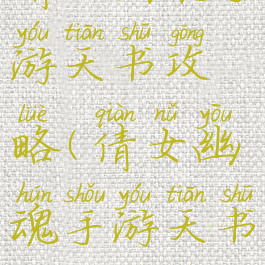 yóu tiān shū gōng
游天书攻
lüè qiàn nǚ yōu
略(倩女幽
hún shǒu yóu tiān shū
魂手游天书